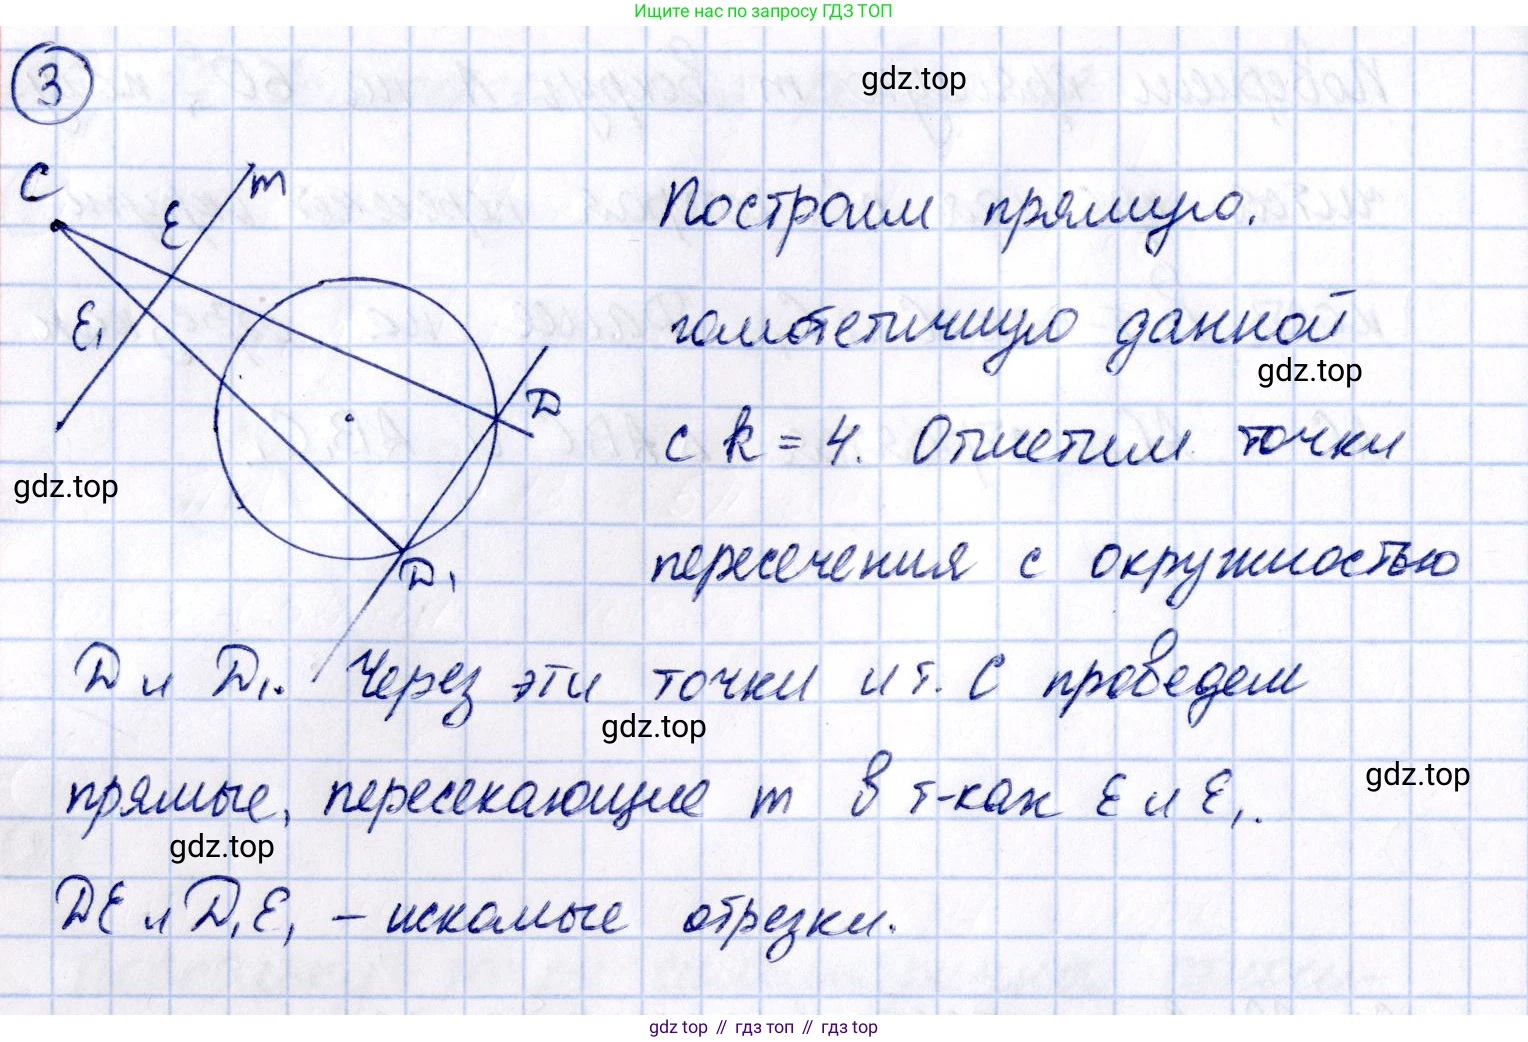 Ищите нас по запросу ГДЗ ТОП
3
gdz.top
C
E
m
Построим прямую.
E₁
гомотетичную данной
gdz.top
D
с k = 4. Отметим точки
gdz.top
пересечения с окружностью
D₁
D и D₁. Через эти точки и т. C проведем
gdz.top
прямые, пересекающие m в т-ках E и E₁.
gdz.top
gdz.top
DE и D₁E₁ – искомые отрезки.
gdz top // гдз топ // гдз top